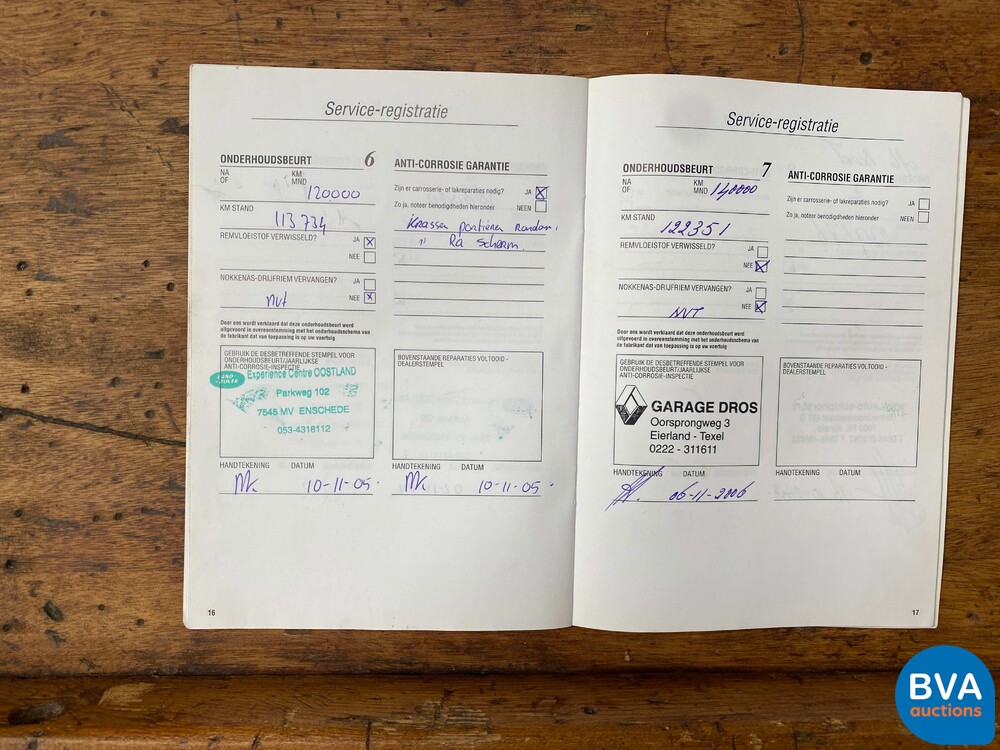 Service-registratie
ONDERHOUDSBEURT 6
NA
OF
KM
MND
120000
KM STAND
113734
REMVLOEISTOF VERWISSELD?
JA X
NEE
NOKKENAS-DRIJFRIEM VERVANGEN?
JA
nvt
NEE X
Door ons wordt verklaard dat deze onderhoudsbeurt werd
uitgevoerd in overeenstemming met het onderhoudsschema van
de fabrikant dat van toepassing is op uw voertuig
GEBRUIK DE DESBETREFFENDE STEMPEL VOOR
ONDERHOUDSBEURT/JAARLIJKSE
ANTI-CORROSIE-INSPECTIE
LAND ROVER
Experience Centre OOSTLAND
Parkweg 102
7545 MV ENSCHEDE
053-4318112
HANDTEKENING DATUM
10-11-05
ANTI-CORROSIE GARANTIE
Zijn er carrosserie- of lakreparaties nodig?
JA X
Zo ja, noteer benodigdheden hieronder
NEEN
Krassen portieren rondom
" Ra scherm
BOVENSTAANDE REPARATIES VOLTOOID -
DEALERSTEMPEL
HANDTEKENING DATUM
10-11-05
16
Service-registratie
ONDERHOUDSBEURT 7
NA
OF
KM
MND
140000
KM STAND
122351
REMVLOEISTOF VERWISSELD?
JA
NEE X
NOKKENAS-DRIJFRIEM VERVANGEN?
JA
NVT
NEE X
Door ons wordt verklaard dat deze onderhoudsbeurt werd
uitgevoerd in overeenstemming met het onderhoudsschema van
de fabrikant dat van toepassing is op uw voertuig
GEBRUIK DE DESBETREFFENDE STEMPEL VOOR
ONDERHOUDSBEURT/JAARLIJKSE
ANTI-CORROSIE-INSPECTIE
GARAGE DROS
Oorsprongweg 3
Eierland - Texel
0222 - 311611
HANDTEKENING DATUM
06-11-2006
ANTI-CORROSIE GARANTIE
Zijn er carrosserie- of lakreparaties nodig?
JA
Zo ja, noteer benodigdheden hieronder
NEEN
BOVENSTAANDE REPARATIES VOLTOOID -
DEALERSTEMPEL
HANDTEKENING DATUM
17
BVA
auctions